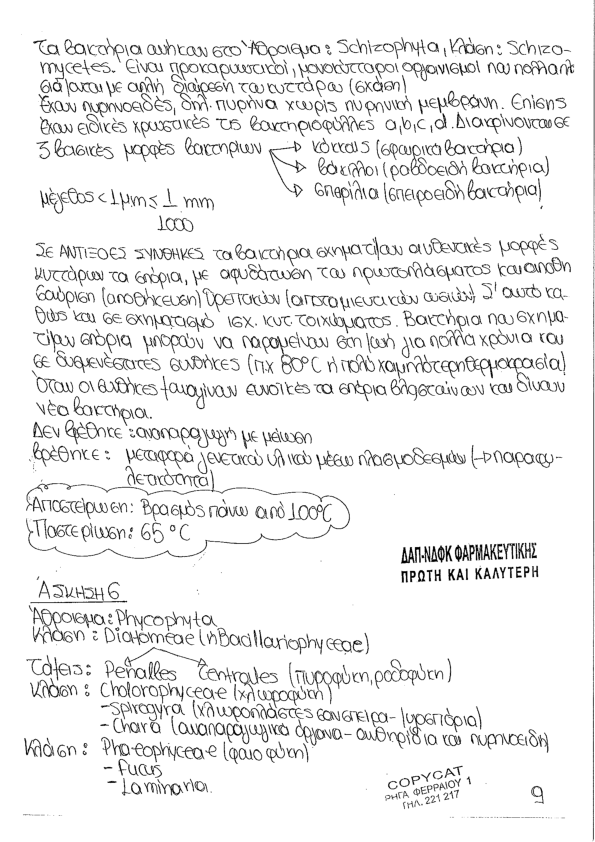 Τα βακτήρια ανήκουν στο Άθροισμα: Schizophyta, Κλάση: Schizo-
mycetes. Είναι προκαρυωτικοί, μονοκύτταροι οργανισμοί που πολλαπλ
σιάζονται με απλή διαίρεση του κυττάρου (σχάση)
Έχουν πυρηνοειδές, δηλ. πυρήνα χωρίς πυρηνική μεμβράνη. Επίσης
έχουν ειδικές χρωστικές τις βακτηριοφύλλες a, b, c, d. Διακρίνονται σε
3 βασικές μορφές βακτηρίων → κόκκους (σφαιρικά βακτήρια)
→ βάκιλλοι (ραβδοειδή βακτήρια)
→ σπειρίλια (σπειροειδή βακτήρια)
μέγεθος < 1μm ≤ 1/1000 mm
ΣΕ ΑΝΤΙΞΟΕΣ ΣΥΝΘΗΚΕΣ τα βακτήρια σχηματίζουν ανθεκτικές μορφές
κυττάρων τα σπόρια, με αφυδάτωση του πρωτοπλάσματος και αποθη
σαύριση (αποθήκευση) θρεπτικών (αποταμιευτικών ουσιών) Σ' αυτό κα-
θώς και σε σχηματισμό ισχ. κυτ. τοιχώματος. Βακτήρια που σχημα-
τίζουν σπόρια μπορούν να παραμείνουν στη ζωή για πολλά χρόνια και
σε δυσμενέστατες συνθήκες (π.χ 80°C ή πολύ χαμηλότερη θερμοκρασία)
Όταν οι συνθήκες ξαναγίνουν ευνοϊκές τα σπόρια βλασταίνουν και δίνουν
νέα βακτήρια.
Δεν βρέθηκε: αναπαραγωγή με μείωση
Βρέθηκε: μεταφορά γενετικού υλικού μέσω πλασμοδεσμών (→ παραφυ-
λετικότητα)
Αποστείρωση: Βρασμός πάνω από 100°C
Παστερίωση: 65°C
ΔΑΠ-ΝΔΦΚ ΦΑΡΜΑΚΕΥΤΙΚΗΣ
ΠΡΩΤΗ ΚΑΙ ΚΑΛΥΤΕΡΗ
ΆΣΚΗΣΗ 6
Άθροισμα: Phycophyta
Κλάση: Diatomeae (ή Bacillariophyceae)
Τάξεις: Penalles Centrales (πυροφύκη, ροδοφύκη)
Κλάση: Cholorophyceae (χλωροφύκη)
- Spirogyra (χλωροπλάστες σαν σπείρα - ζυγοσπόρια)
- Chara (αναπαραγωγικά όργανα - ανθηρίδια και πυρηνοειδή)
Κλάση: Phaeophyceae (φαιοφύκη)
- Fucus
- Laminaria.
COPYCAT
ΡΗΓΑ ΦΕΡΡΑΙΟΥ 1
ΤΗΛ. 221 217
9